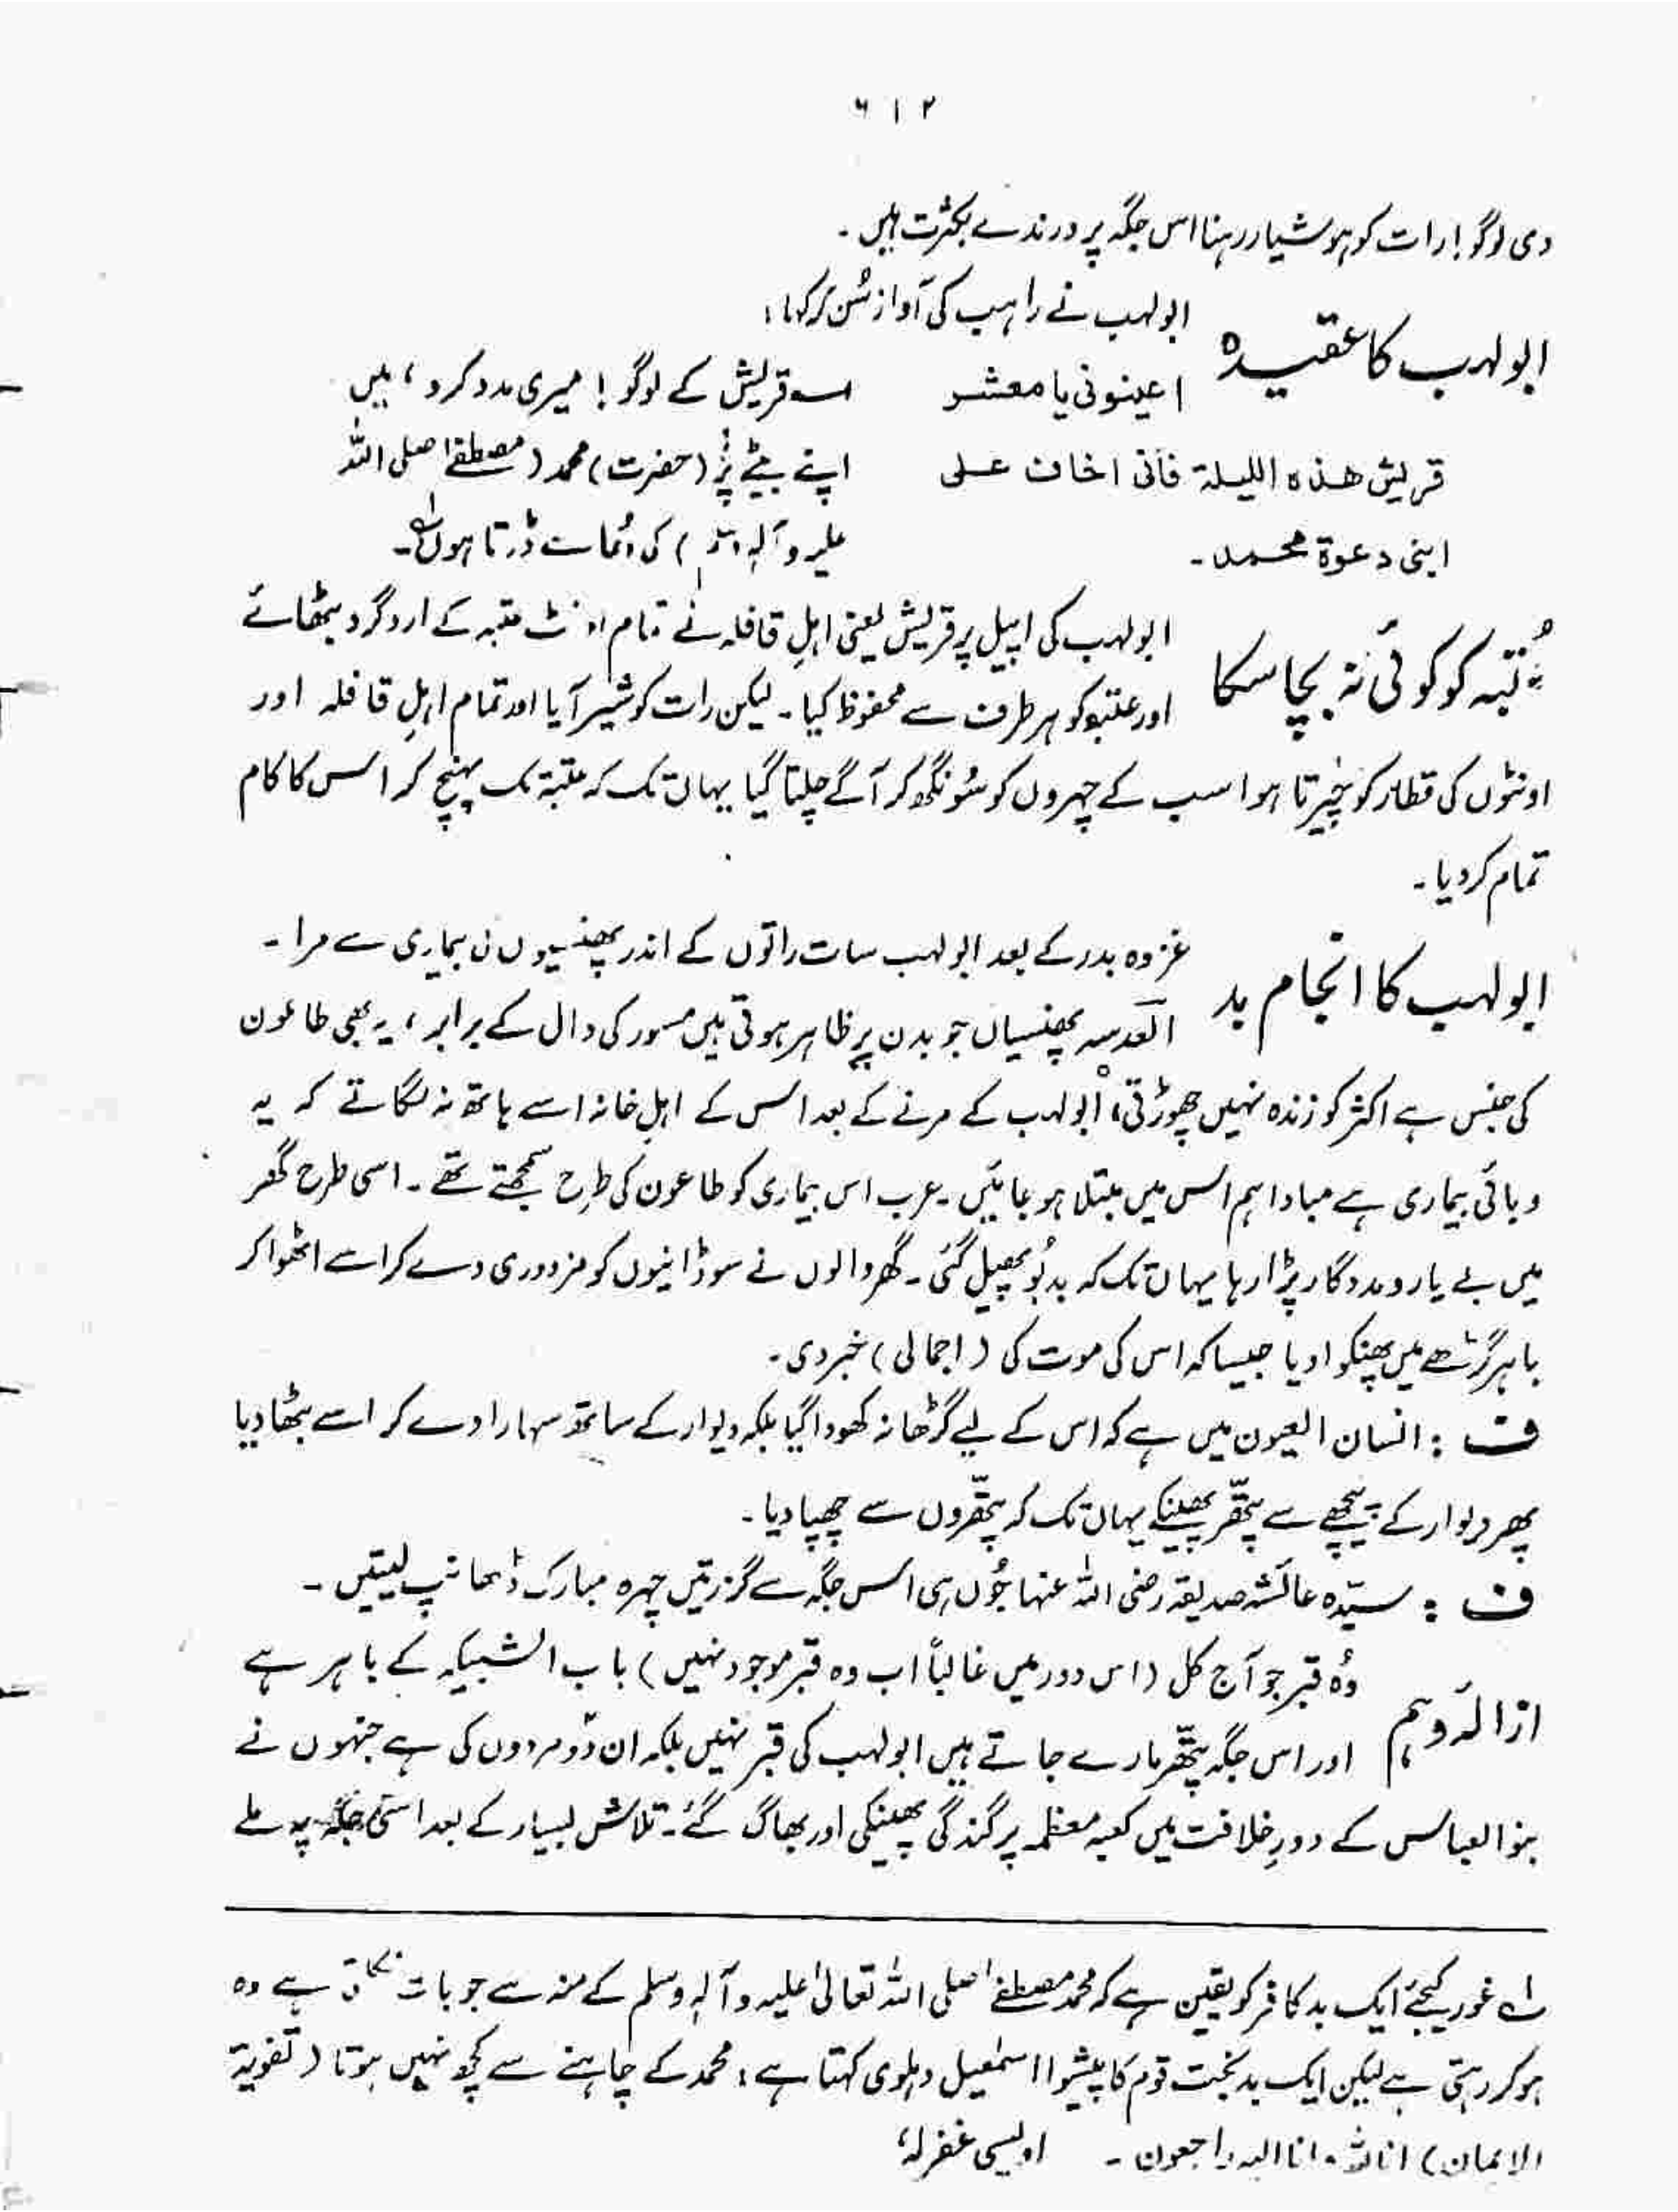 ۶۱۲
دی لوگو! رات کو ہوشیار رہنا اس جگہ پر درندے بکثرت ہیں۔
ابولہب کا عقیدہ
ابولہب نے راہب کی آواز سُن کر کہا:
اعینونی یا معشر
اے قریش کے لوگو! میری مدد کرو، میں
قریش ھذہ اللیلۃ فانی اخاف علی
اپنے بیٹے پر (حضرت) محمد (مصطفےٰ صلی اللہ
ابنی دعوۃ محمد۔
علیہ وآلہٖ وسلم) کی دُعا سے ڈرتا ہوں۔
عُتبہ کو کوئی نہ بچا سکا
ابولہب کی اپیل پر قریش یعنی اہلِ قافلہ نے تمام اونٹ عتبہ کے ارد گرد بٹھائے
اور عتبہ کو ہر طرف سے محفوظ کیا۔ لیکن رات کو شیر آیا اور تمام اہلِ قافلہ اور
اونٹوں کی قطار کو چیرتا ہوا سب کے چہروں کو سُونگھ کر آگے چلتا گیا یہاں تک کہ عتبۃ تک پہنچ کر اس کا کام
تمام کر دیا۔
ابولہب کا انجام بد
غزوہ بدر کے بعد ابولہب سات راتوں کے اندر پھنسیوں کی بیماری سے مرا۔
العدسہ پھنسیاں جو بدن پر ظاہر ہوتی ہیں مسور کی دال کے برابر، یہ بھی طاعون
کی جنس ہے اکثر کو زندہ نہیں چھوڑتی، ابولہب کے مرنے کے بعد اس کے اہلِ خانہ اسے ہاتھ نہ لگاتے کہ یہ
وبائی بیماری ہے مبادا ہم اس میں مبتلا ہو جائیں۔ عرب اس بیماری کو طاعون کی طرح سمجھتے تھے۔ اسی طرح گھر
میں بے یار و مددگار پڑا رہا یہاں تک کہ بدبُو پھیل گئی۔ گھر والوں نے سوڈانیوں کو مزدوری دے کر اسے اٹھوا کر
باہر گڑھے میں پھنکوا دیا جیسا کہ اس کی موت کی (اجمالی) خبر دی۔
ف : انسان العیون میں ہے کہ اس کے لیے گڑھا نہ کھودا گیا بلکہ دیوار کے ساتھ سہارا دے کر اسے بٹھا دیا
پھر دیوار کے پیچھے سے پتھّر پھینکے یہاں تک کہ پتھّروں سے چھپا دیا۔
ف : سیّدہ عائشہ صدیقہ رضی اللہ عنہا جُوں ہی اس جگہ سے گزرتیں چہرہ مبارک ڈھانپ لیتیں۔
ازالہٴ وہم
وُہ قبر جو آج کل (اس دور میں غالباً اب وہ قبر موجود نہیں) باب الشبیکہ کے باہر ہے
اور اس جگہ پتھّر مارے جاتے ہیں ابولہب کی قبر نہیں بلکہ ان دو مردوں کی ہے جنہوں نے
بنو العباس کے دورِ خلافت میں کعبہ معظمہ پر گندگی پھینکی اور بھاگ گئے۔ تلاش بسیار کے بعد اسی جگہ پہ ملے
لہ غور کیجئے ایک بد کافر کو یقین ہے کہ محمد مصطفےٰ صلی اللہ تعالیٰ علیہ وآلہٖ وسلم کے منہ سے جو بات نکلتی ہے وہ
ہو کر رہتی ہے لیکن ایک بدبخت قوم کا پیشوا اسمٰعیل دہلوی کہتا ہے: محمد کے چاہنے سے کچھ نہیں ہوتا (تقویۃ
الایمان) انا للہ و انا الیہ راجعون۔ اویسی غفرلہٗ